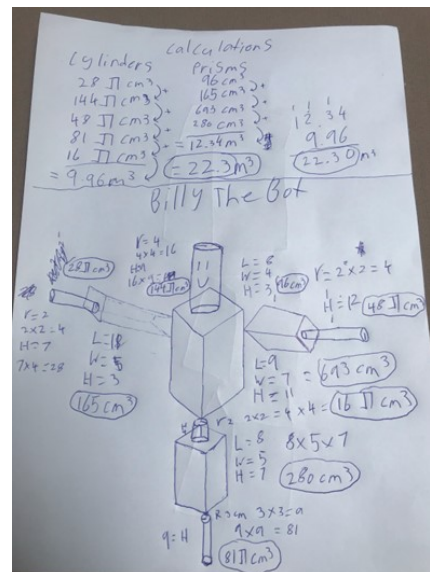 calculations
Cylinders
28 π cm³
144 π cm³
48 π cm³
81 π cm³
16 π cm³
= 9.96m³
Prisms
96 cm³
165 cm³
693 cm³
280 cm³
= 12.34m³
= 22.3m³
1 1 1
12.34
9.96
22.30m³
Billy The Bot
28π cm³
r=2
2x2=4
H=7
7x4=28
r=4
4x4=16
H=9
144π cm³
L=8
W=4
H=3
96cm³
r=2 2x2=4
H=12
48π cm³
H=3
165 cm³
L=9
W=7
H=11
= 693 cm³
r2
2x2=4x4=
16 π cm³
L=8
W=5
H=7
8x5x7
280 cm³
R3cm 3x3=9
9=H
9x9=81
81π cm³